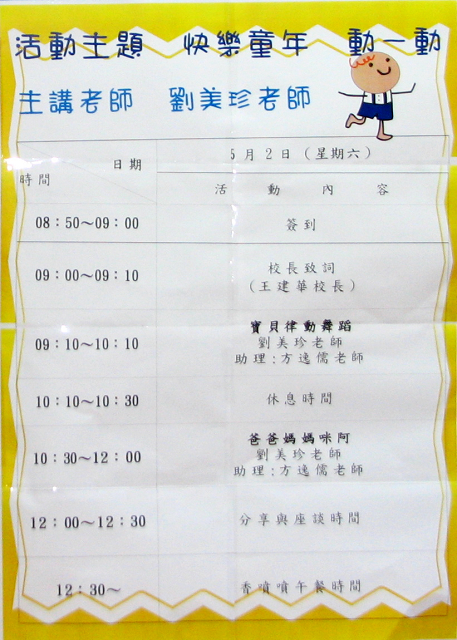 活動主題　快樂童年　動一動
主講老師　劉美珍老師
日期
時間
5月2日（星期六）
活動內容
08：50～09：00　簽到
09：00～09：10　校長致詞
（王建華校長）
09：10～10：10　寶貝律動舞蹈
劉美珍老師
助理：方逸儒老師
10：10～10：30　休息時間
10：30～12：00　爸爸媽媽咪阿
劉美珍老師
助理：方逸儒老師
12：00～12：30　分享與座談時間
12：30～　香噴噴午餐時間